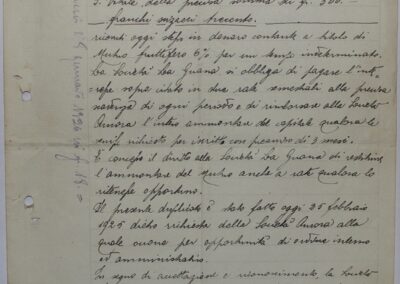 S. Vitale della precisa somma di fr. 300.—
franchi svizzeri trecento.
ricevuti oggi stesso in denaro contante a titolo di
Mutuo fruttifero 6% per un tempo indeterminato.
La Società La Guana si obbliga di pagare l'inte-
resse sopra citato in due rate semestrali alla precisa
scadenza di ogni periodo e di rimborsare alla Società
Aurora l'intero ammontare del capitale qualora le
venisse richiesto per iscritto con preavviso di 3 mesi.
È concesso il diritto alla Società La Guana di restituire
l'ammontare del Mutuo anche a rate qualora lo
ritenesse opportuno.
Il presente duplicato è stato fatto oggi 25 febbraio
1925 dietro richiesta della Società Aurora alla
quale occorre per opportunità di ordine interno
ed amministrativo.
In segno di accettazione e riconoscimento, la Società
1926
fr. 18 =